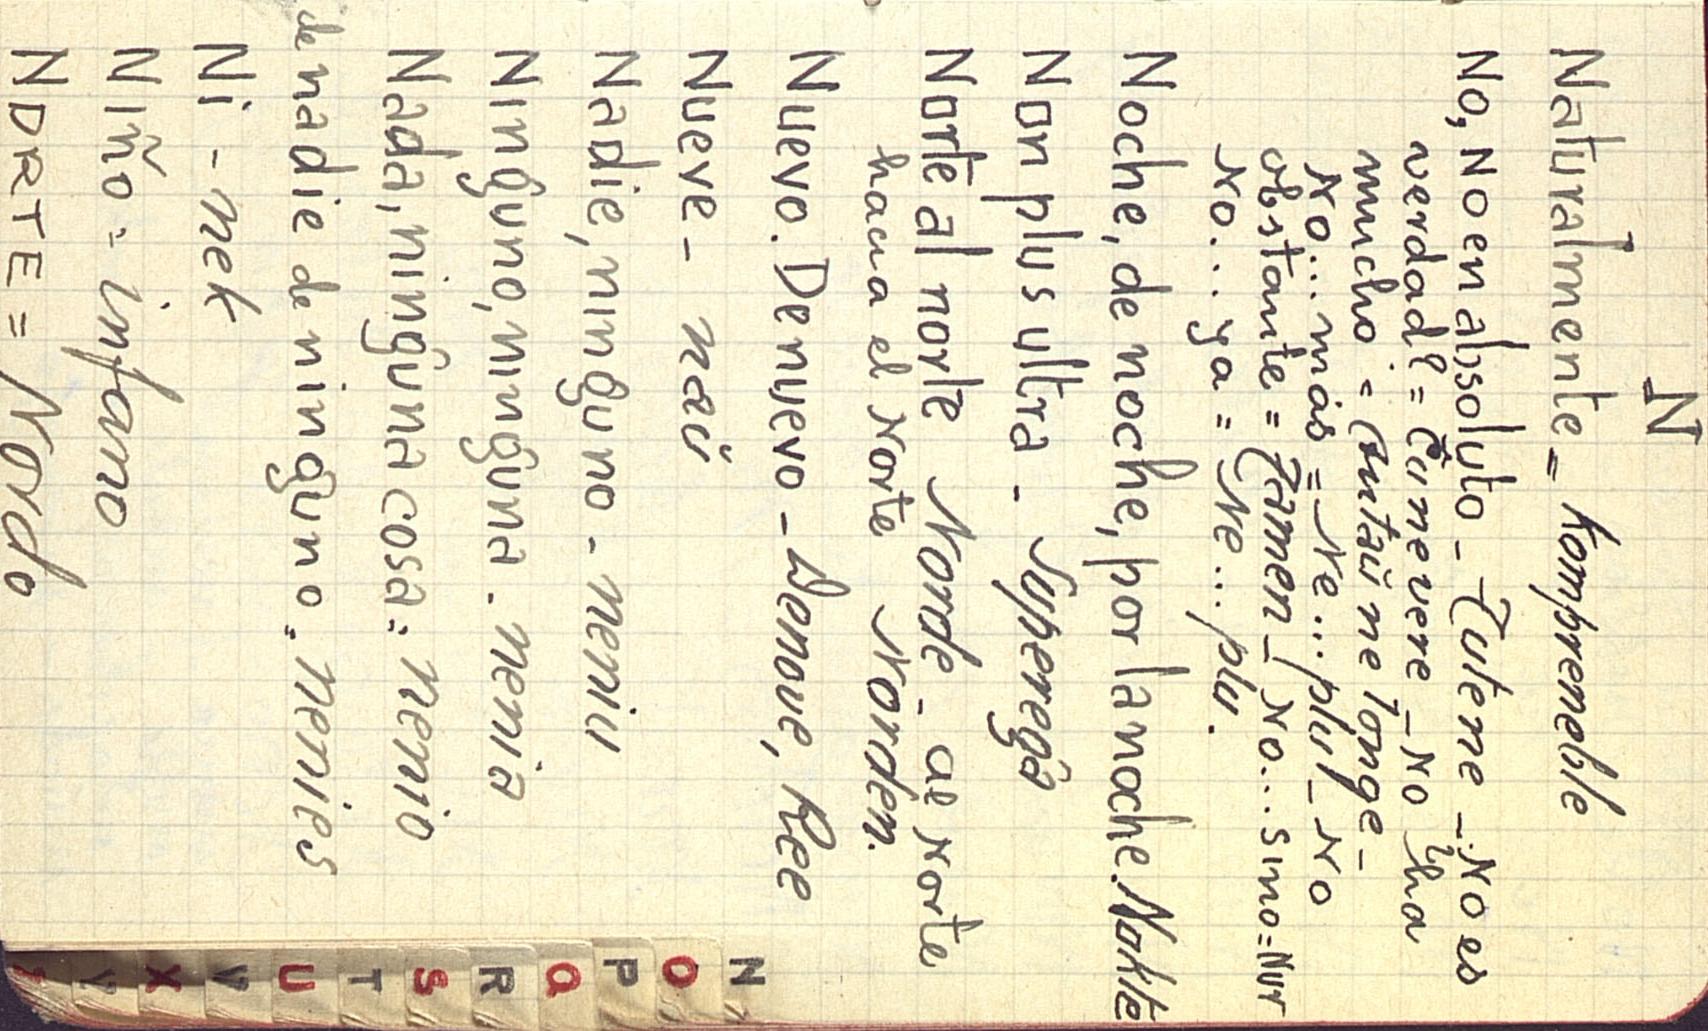 N
Naturalmente = Kompreneble
No, No en absoluto - Tutene - No es
verdad? = Ĉu ne vere - No ha
mucho = antaŭ ne longe -
No... más = Ne... plu - No
obstante = Tamen - No... sino = Nur
No... ya = Ne... plu.
Noche, de noche, por la noche. Nokte
Non plus ultra - Superega
Norte al norte Norde - al Norte
hacia el Norte Norden.
Nuevo. De nuevo - Denove, Ree
Nueve - naŭ
Nadie, ninguno - neniu
Ninguno, ninguna - nenia
Nada, ninguna cosa = nenio
de nadie de ninguno = nenies
Ni - nek
Niño = infano
NORTE = Nordo
N O P Q R S T U V X Y